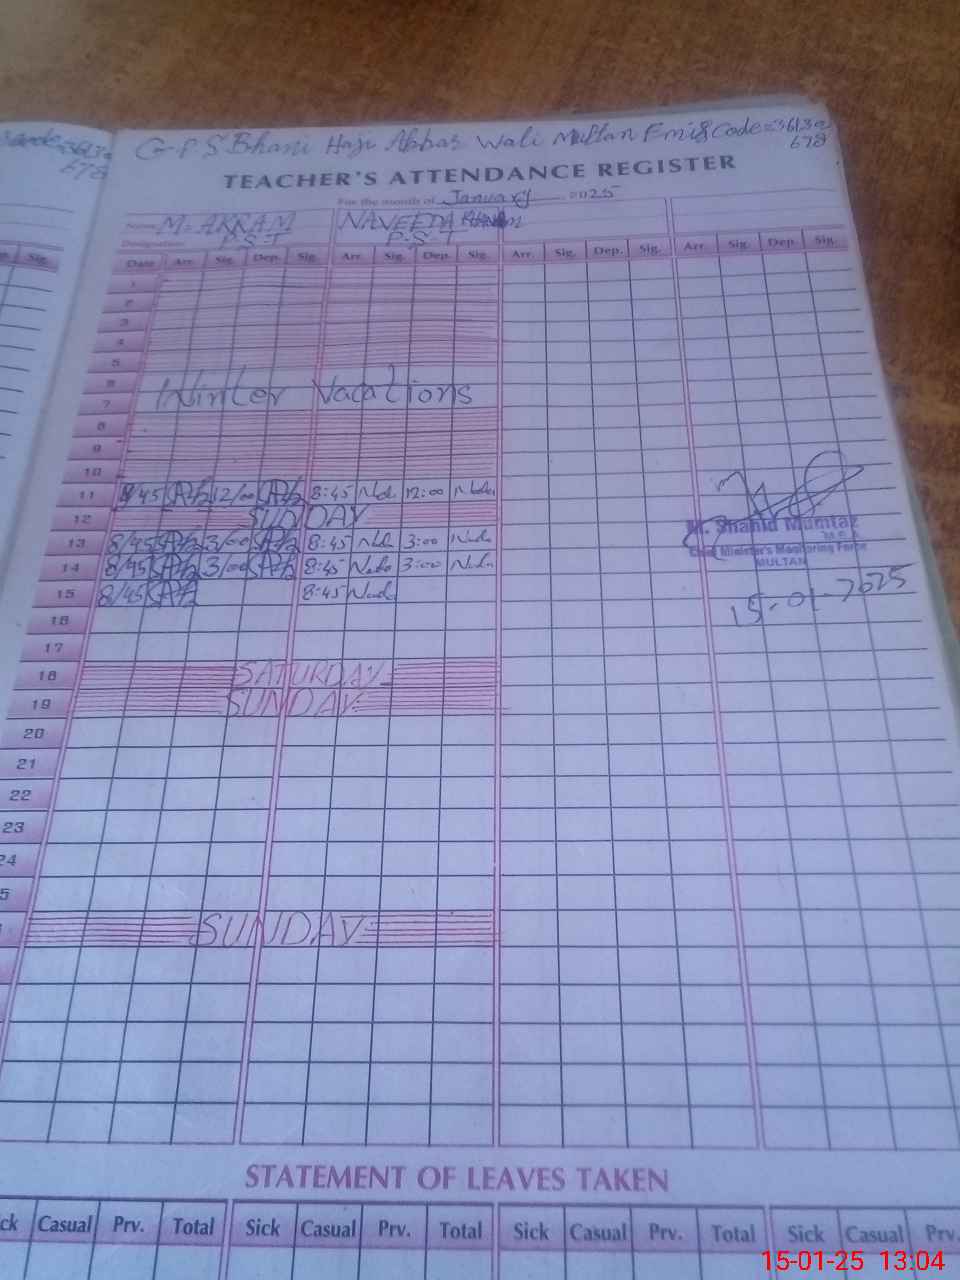 G.P.S Bhani Haji Abbas Wali Multan Emis Code=3613o
678
TEACHER'S ATTENDANCE REGISTER
For the month of January 2025
Name M. AKRAM NAVEEDA
Designation P.S.T P.S.T
Date Arr. Sig. Dep. Sig. Arr. Sig. Dep. Sig. Arr. Sig. Dep. Sig. Arr. Sig. Dep. Sig.
1
2
3
4
5
6
Winter Vacations
7
8
9
10
11 8/45 12/00 8:45 12:00
12 SUNDAY
13 8/45 3/00 8:45 3:00
14 8/45 3/00 8:45 3:00
15 8/45 8:45
M. Shahid Mumtaz
M.E.A
Chief Minister's Monitoring Force
MULTAN
15-01-2025
16
17
18 SATURDAY
19 SUNDAY
20
21
22
23
24
5
SUNDAY
STATEMENT OF LEAVES TAKEN
ck Casual Prv. Total Sick Casual Prv. Total Sick Casual Prv. Total Sick Casual Prv.
15-01-25 13:04